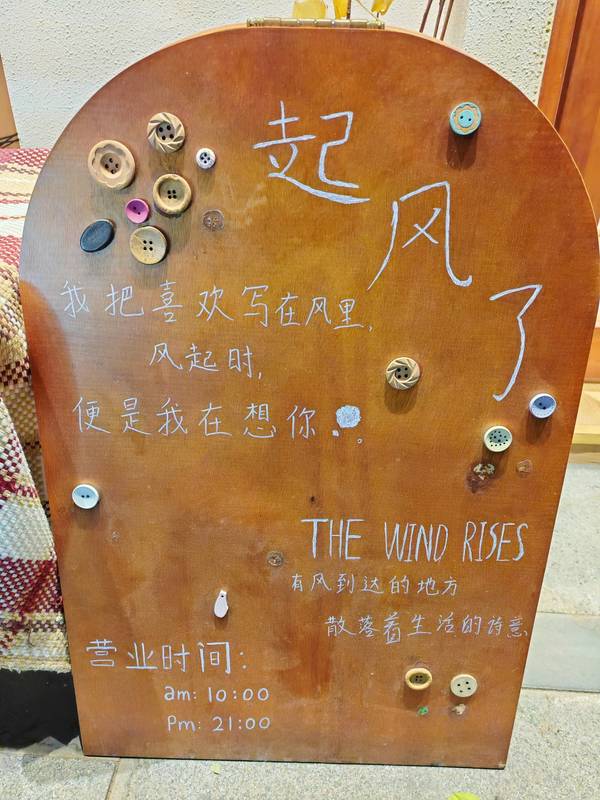 起风了
我把喜欢写在风里,
风起时,
便是我在想你。
THE WIND RISES
有风到达的地方
散落着生活的诗意
营业时间:
am: 10:00
Pm: 21:00